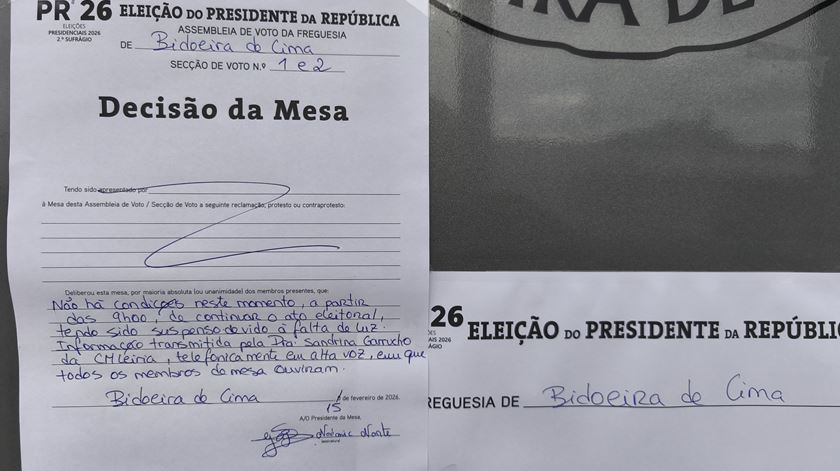 PR 26 ELEIÇÃO DO PRESIDENTE DA REPÚBLICA
ELEIÇÕES
PRESIDENCIAIS 2026
2.º SUFRÁGIO
ASSEMBLEIA DE VOTO DA FREGUESIA
DE Bidoeira de Cima
SECÇÃO DE VOTO N.º 1 e 2
Decisão da Mesa
Tendo sido apresentado por
à Mesa desta Assembleia de Voto / Secção de Voto a seguinte reclamação, protesto ou contraprotesto:
Deliberou esta mesa, por maioria absoluta (ou unanimidade) dos membros presentes, que:
Não há condições neste momento, a partir
das 9h00, de continuar o ato eleitoral,
tendo sido suspenso devido à falta de luz.
Informação transmitida pela Dra. Sandrina
da CMLeiria, telefonicamente em alta voz, em que
todos os membros da mesa ouviram.
Bidoeira de Cima
15 de fevereiro de 2026.
A/O Presidente da Mesa,
Noémie
RA DE
26 ELEIÇÃO DO PRESIDENTE DA REPÚBLI
ÕES
AIS 2026
ÁGIO
REGUESIA DE Bidoeira de Cima